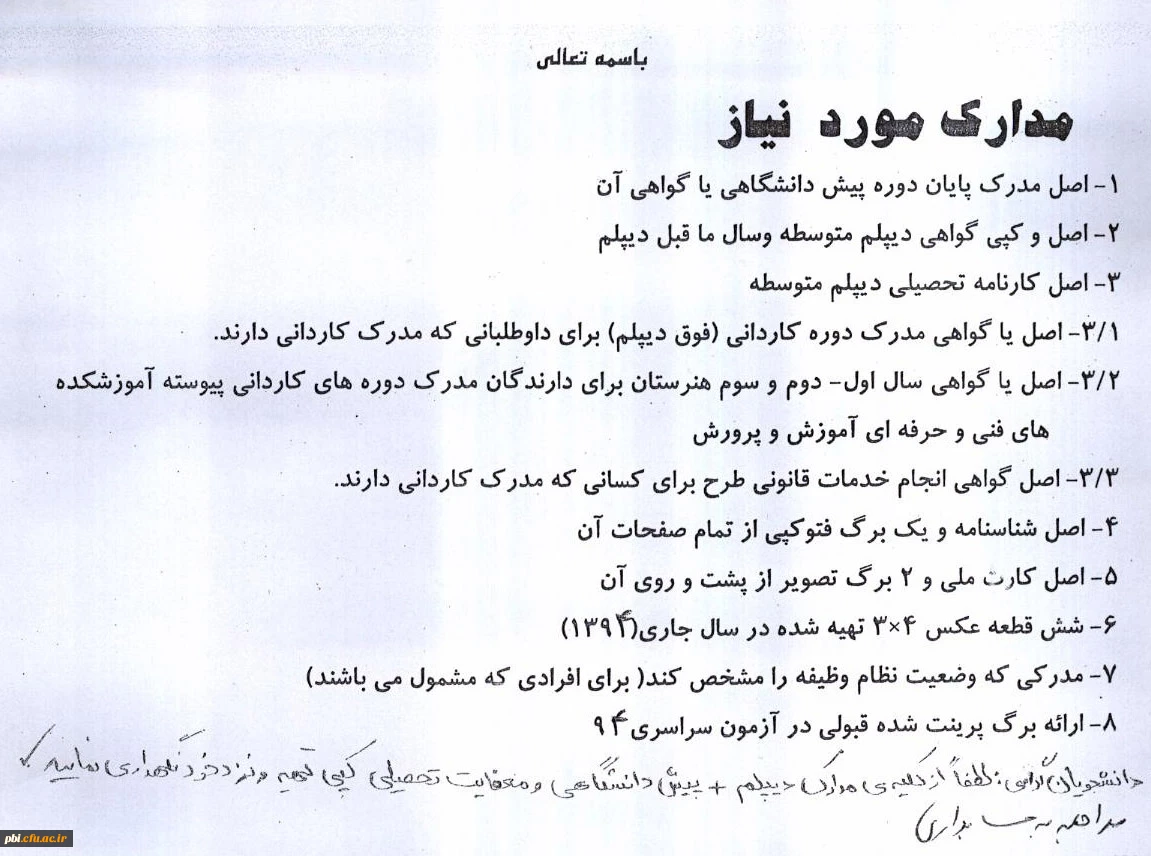 باسمه تعالی
مدارک مورد نیاز
۱- اصل مدرک پایان دوره پیش دانشگاهی یا گواهی آن
۲- اصل و کپی گواهی دیپلم متوسطه وسال ما قبل دیپلم
۳- اصل کارنامه تحصیلی دیپلم متوسطه
۳/۱- اصل یا گواهی مدرک دوره کاردانی (فوق دیپلم) برای داوطلبانی که مدرک کاردانی دارند.
۳/۲- اصل یا گواهی سال اول- دوم و سوم هنرستان برای دارندگان مدرک دوره های کاردانی پیوسته آموزشکده
های فنی و حرفه ای آموزش و پرورش
۳/۳- اصل گواهی انجام خدمات قانونی طرح برای کسانی که مدرک کاردانی دارند.
۴- اصل شناسنامه و یک برگ فتوکپی از تمام صفحات آن
۵- اصل کارت ملی و ۲ برگ تصویر از پشت و روی آن
۶- شش قطعه عکس ۴×۳ تهیه شده در سال جاری(۱۳۹۴)
۷- مدرکی که وضعیت نظام وظیفه را مشخص کند( برای افرادی که مشمول می باشند)
۸- ارائه برگ پرینت شده قبولی در آزمون سراسری ۹۴
دانشجویان گرامی: لطفاً از کلیه‌ی مدارک دیپلم + پیش دانشگاهی و تحصیلی کپی تهیه و نزد خود نگهداری نمایید.
مراجعه به حسابداری
pbi.cfu.ac.ir